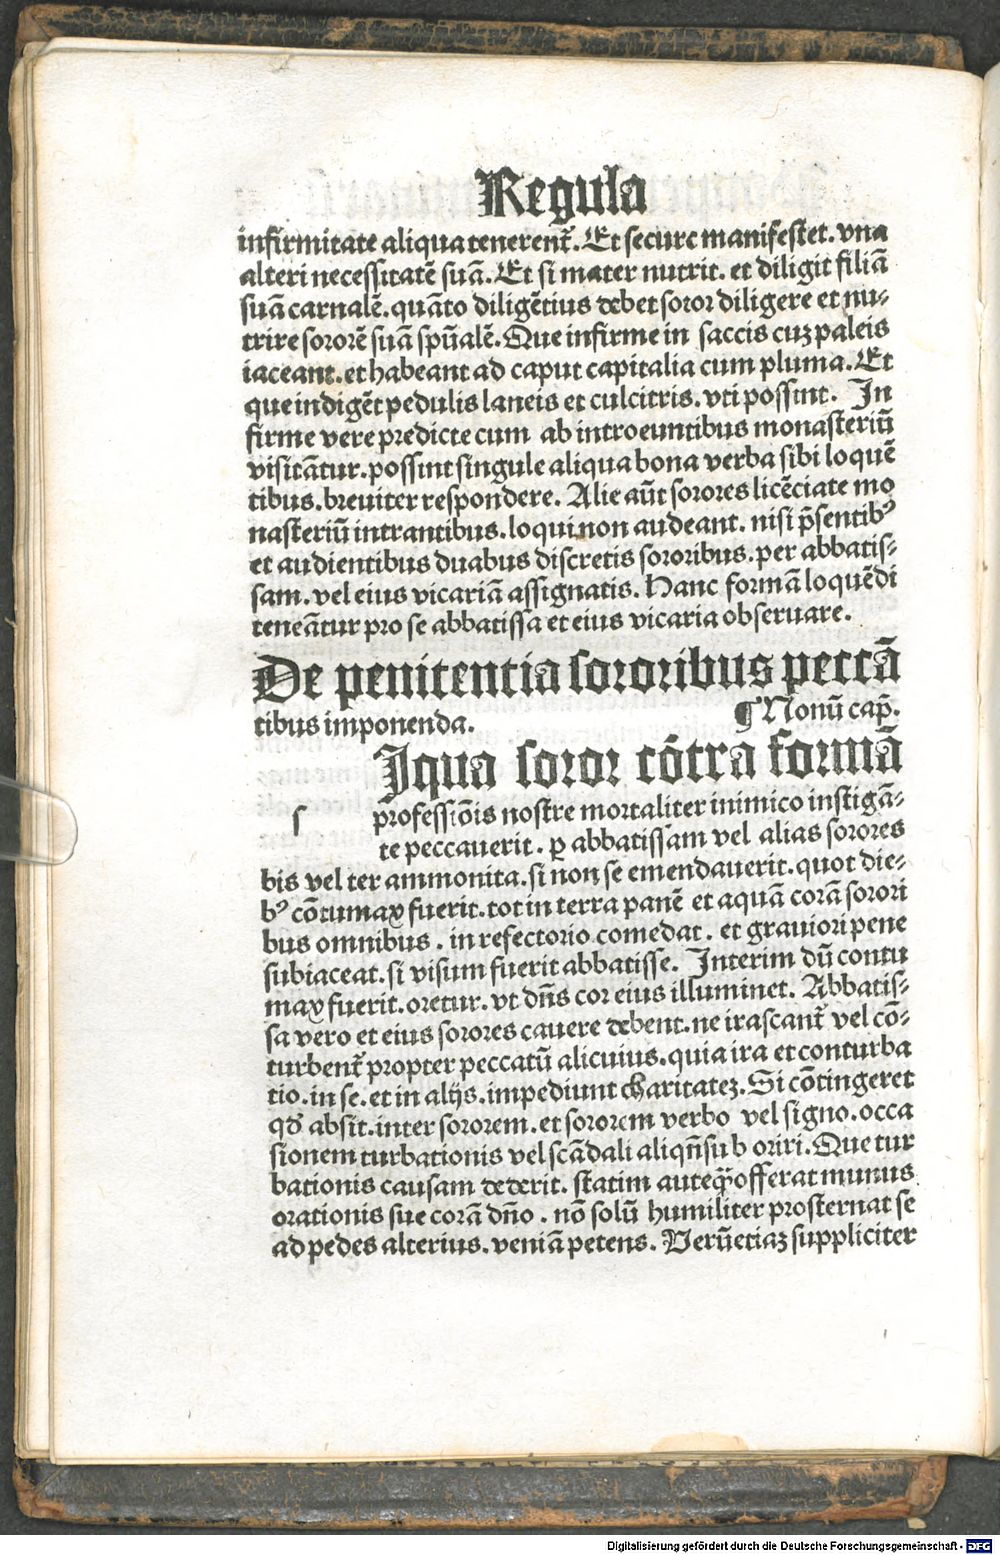 Regula
infirmitate aliqua tenerent̄. Et secure manifestet. vna
alteri necessitatē suā. Et si mater nutrit. et diligit filiā
suā carnalē. quāto diligētius debet soror diligere et nu-
trire sororē suā spūalē. Que infirme in saccis cuꝫ paleis
iaceant. et habeant ad caput capitalia cum pluma. Et
que indigēt pedulis laneis et culcitris. vti possint. In
firme vere predicte cum ab introeuntibus monasteriū
visitātur. possint singule aliqua bona verba sibi loquē
tibus. breuiter respondere. Alie aūt sorores licēciate mo
nasteriū intrantibus. loqui non audeant. nisi p̄sentibꝰ
et audientibus duabus discretis sororibus. per abbatis-
sam. vel eius vicariā assignatis. Hanc formā loquēdi
teneātur pro se abbatissa et eius vicaria obseruare.
De penitentia sororibus peccā
tibus imponenda. ¶ Nonū cap̄.
s Iqua soror cōtra formā
professiōis nostre mortaliter inimico instigā-
te peccauerit. ꝑ abbatissam vel alias sorores
bis vel ter ammonita. si non se emendauerit. quot die-
bꝰ cōtumax fuerit. tot in terra panē et aquā corā sorori
bus omnibus. in refectorio comedat. et grauiori pene
subiaceat. si visum fuerit abbatisse. Interim dū contu
max fuerit. oretur. vt dn̄s cor eius illuminet. Abbatis-
sa vero et eius sorores cauere debent. ne irascant̄ vel cō-
turbent̄ propter peccatū alicuius. quia ira et conturba
tio. in se. et in alijs. impediunt charitateꝫ. Si cōtingeret
qđ absit. inter sororem. et sororem verbo vel signo. occa
sionem turbationis vel scādali aliqn̄ sub oriri. Que tur
bationis causam dederit. statim anteꝙ̄ offerat munus
orationis sue corā dn̄o. nō solū humiliter prosternat se
ad pedes alterius. veniā petens. Verū etiaꝫ suppliciter
Digitalisierung gefördert durch die Deutsche Forschungsgemeinschaft - DFG